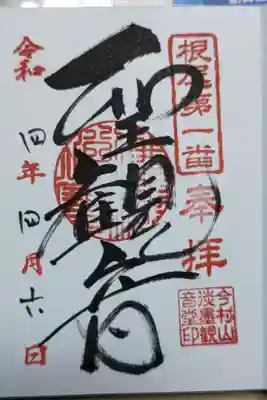 根尾第一番
奉拝
聖観音
令和四年四月六日
今村山
淡墨観
音堂印